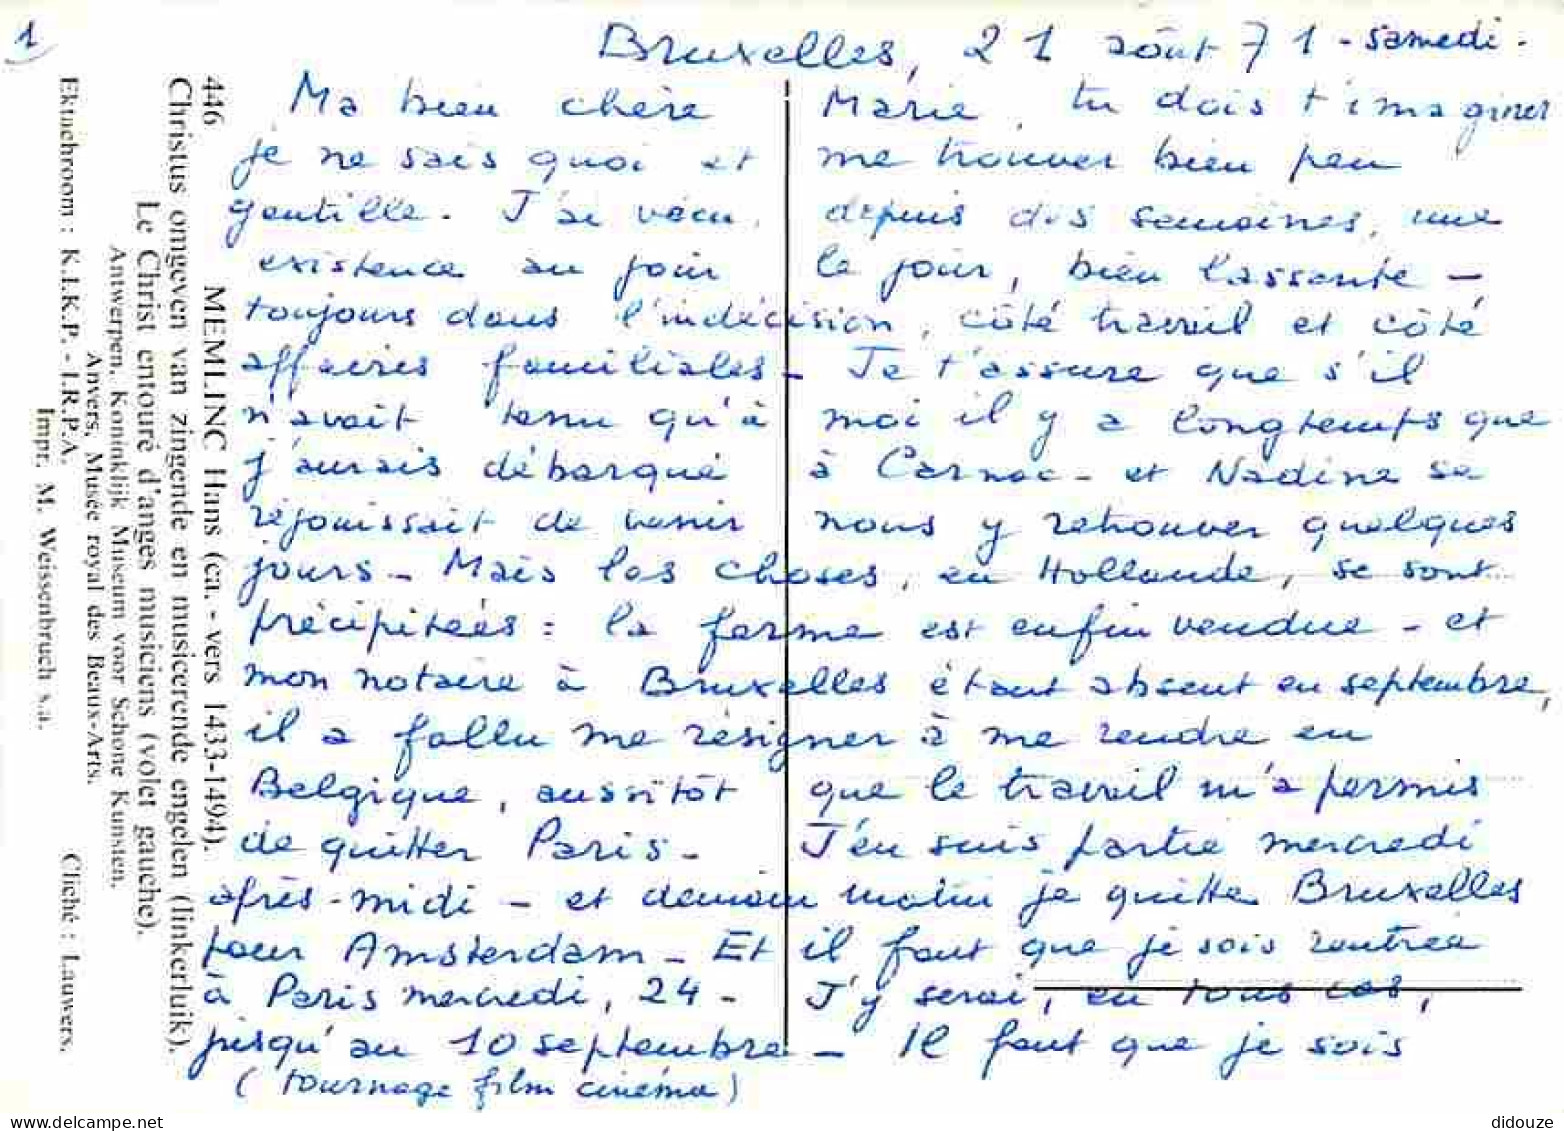 1
Bruxelles, 21 août 71 - samedi.
Ma bien chère Marie, tu dois t'imaginer
je ne sais quoi et me trouver bien peu
gentille. J'ai vécu, depuis des semaines, une
existence au jour le jour, bien lassante -
toujours dans l'indécision, côté travail et côté
affaires familiales - Je t'assure que s'il
n'avait tenu qu'à moi il y a longtemps que
j'aurais débarqué à Carnac - et Nadine se
réjouissait de venir nous y retrouver quelques
jours - Mais les choses, en Hollande, se sont
précipitées : la ferme est enfin vendue - et
mon notaire à Bruxelles étant absent en septembre,
il a fallu me résigner à me rendre en
Belgique, aussitôt que le travail m'a permis
de quitter Paris - J'en suis partie mercredi
après-midi - et demain matin je quitte Bruxelles
pour Amsterdam - Et il faut que je sois rentrée
à Paris mercredi, 24 - J'y serai, en tous cas,
jusqu'au 10 septembre - Il faut que je sois
(tournage film cinéma)
446 MEMLINC Hans (ca. - vers 1433-1494).
Christus omgeven van zingende en musicerende engelen (linkerluik).
Le Christ entouré d'anges musiciens (volet gauche).
Antwerpen, Koninklijk Museum voor Schone Kunsten.
Anvers, Musée royal des Beaux-Arts.
Ektachroom : K.I.K.P. - I.R.P.A. Cliché : Lauwers.
Impr. M. Weissenbruch s.a.
didouze
www.delcampe.net